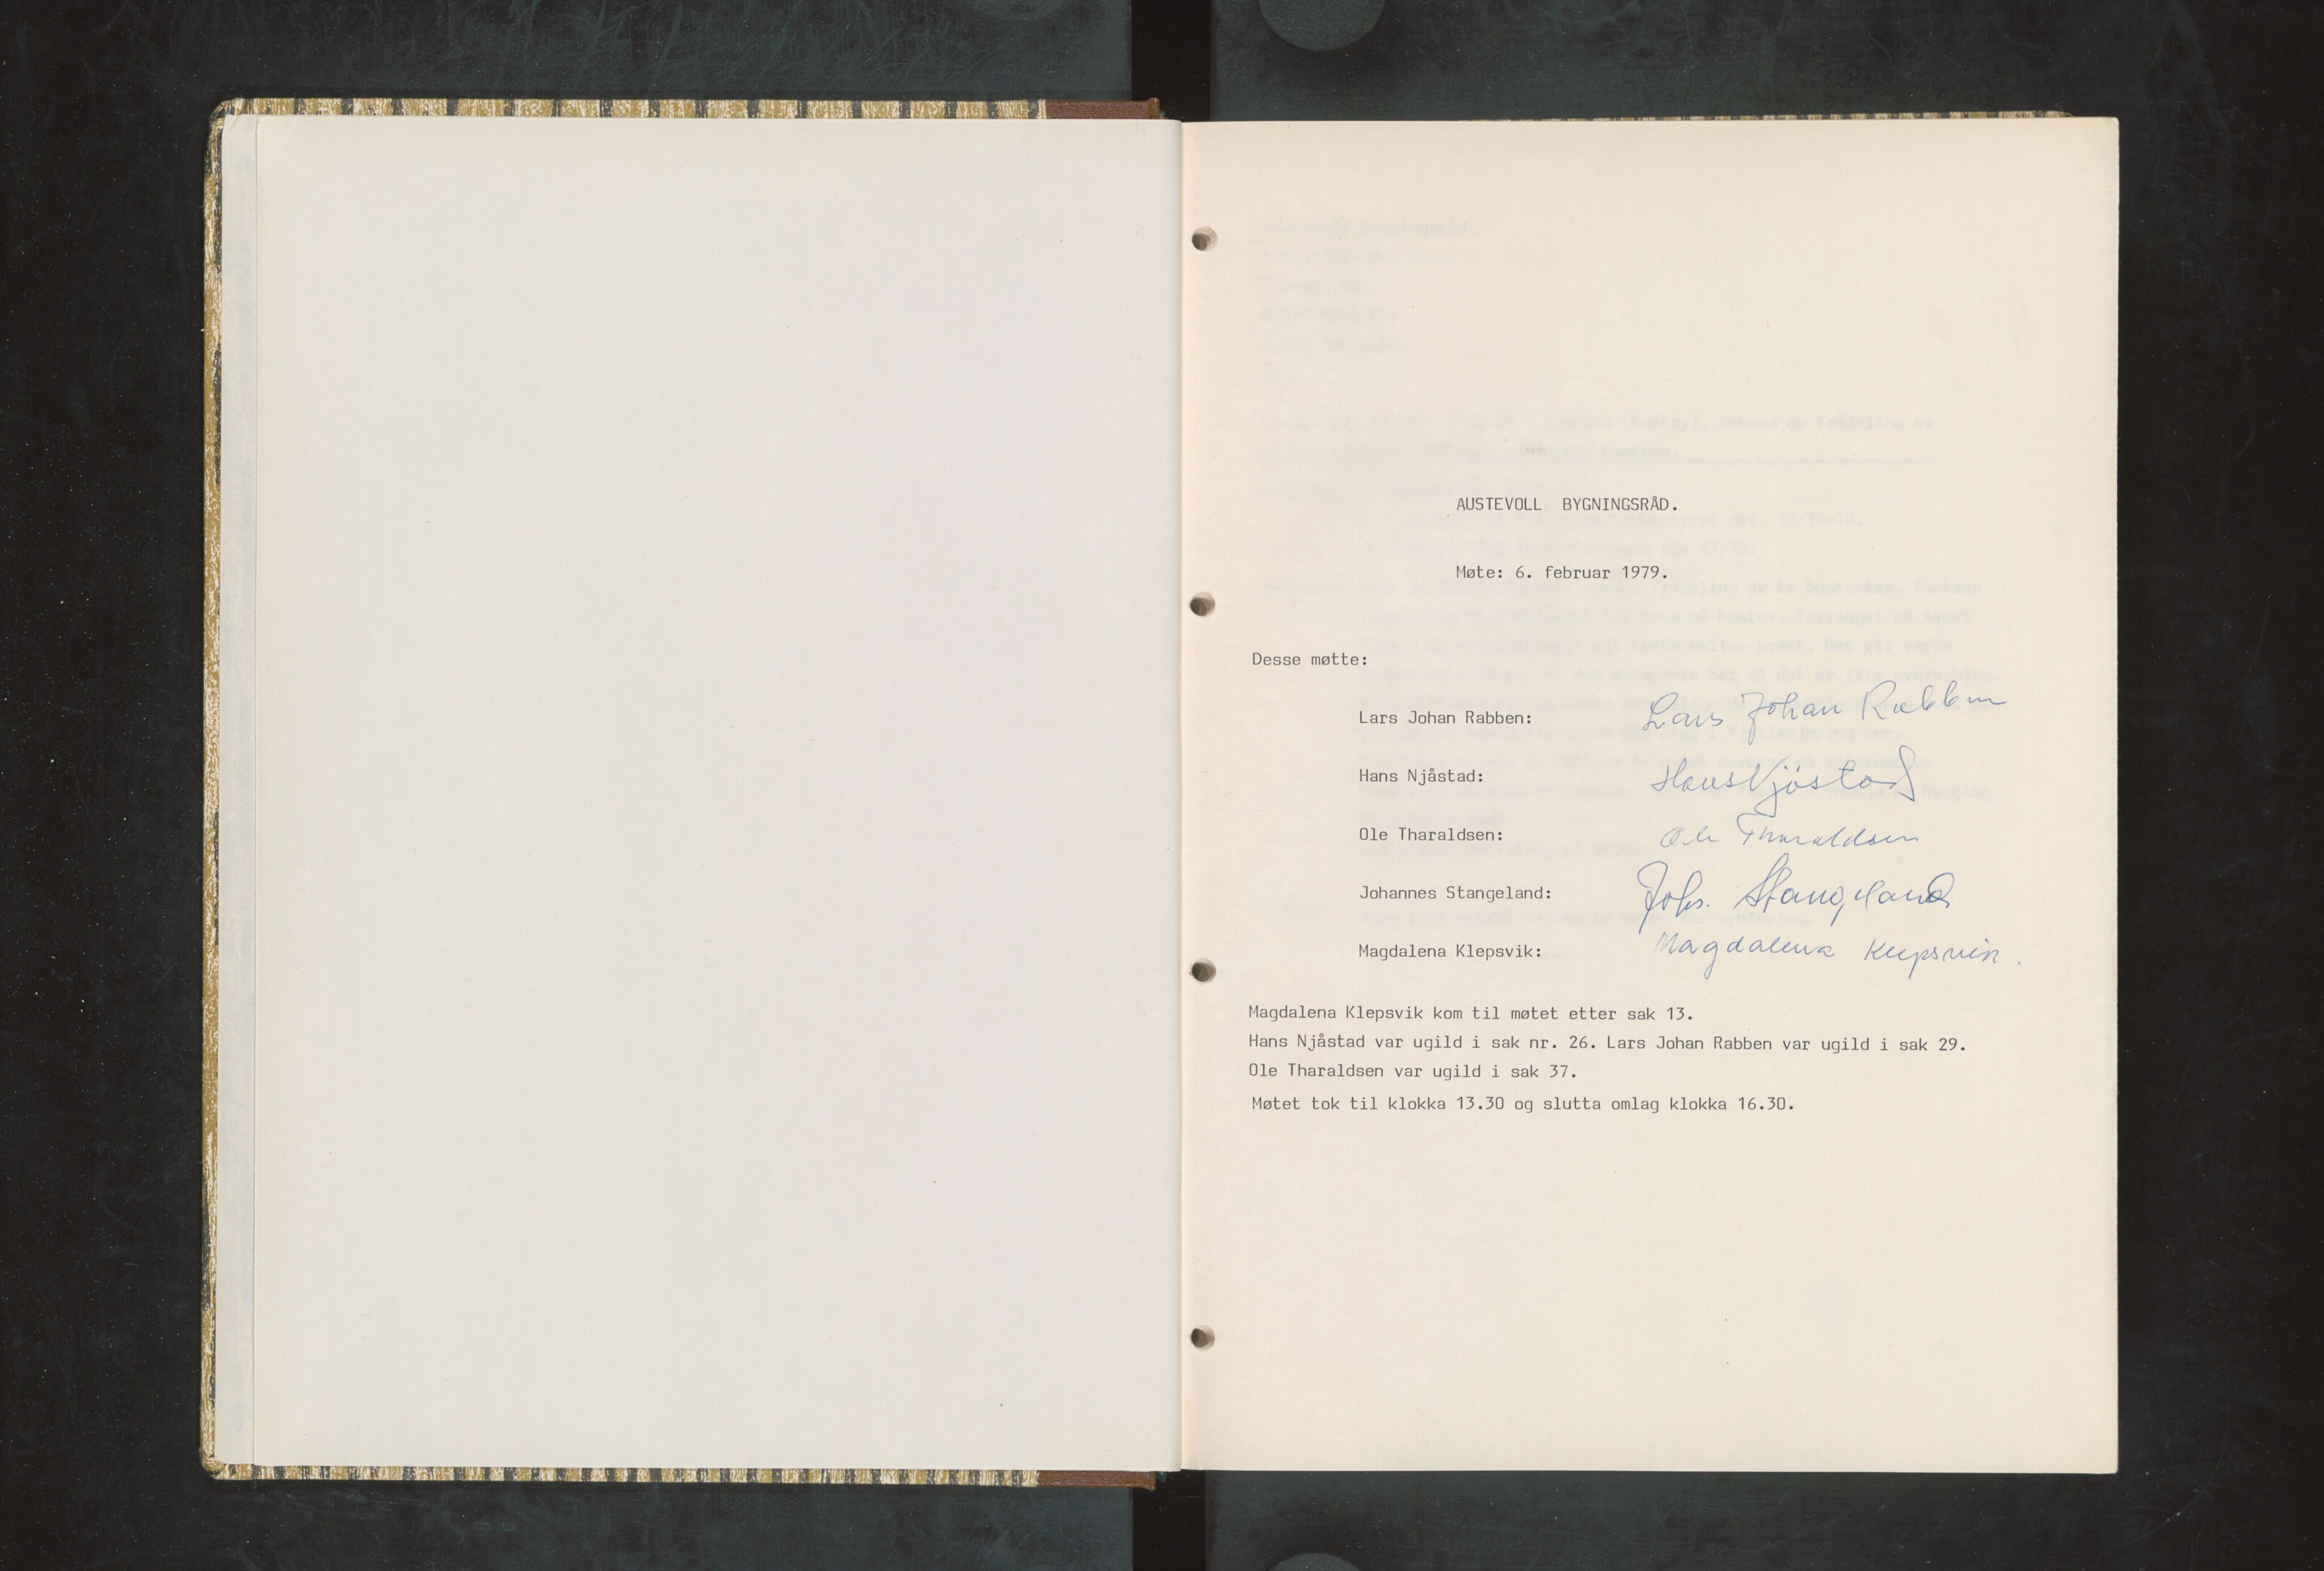 AUSTEVOLL BYGNINGSRÅD.
Møte: 6. februar 1979.
Desse møtte:
Lars Johan Rabben: Lars Johan Rabben
Hans Njåstad: Hans Njåstad
Ole Tharaldsen: Ole Tharaldsen
Johannes Stangeland: Johs. Stangeland
Magdalena Klepsvik: Magdalena Klepsvik.
Magdalena Klepsvik kom til møtet etter sak 13.
Hans Njåstad var ugild i sak nr. 26. Lars Johan Rabben var ugild i sak 29.
Ole Tharaldsen var ugild i sak 37.
Møtet tok til klokka 13.30 og slutta omlag klokka 16.30.